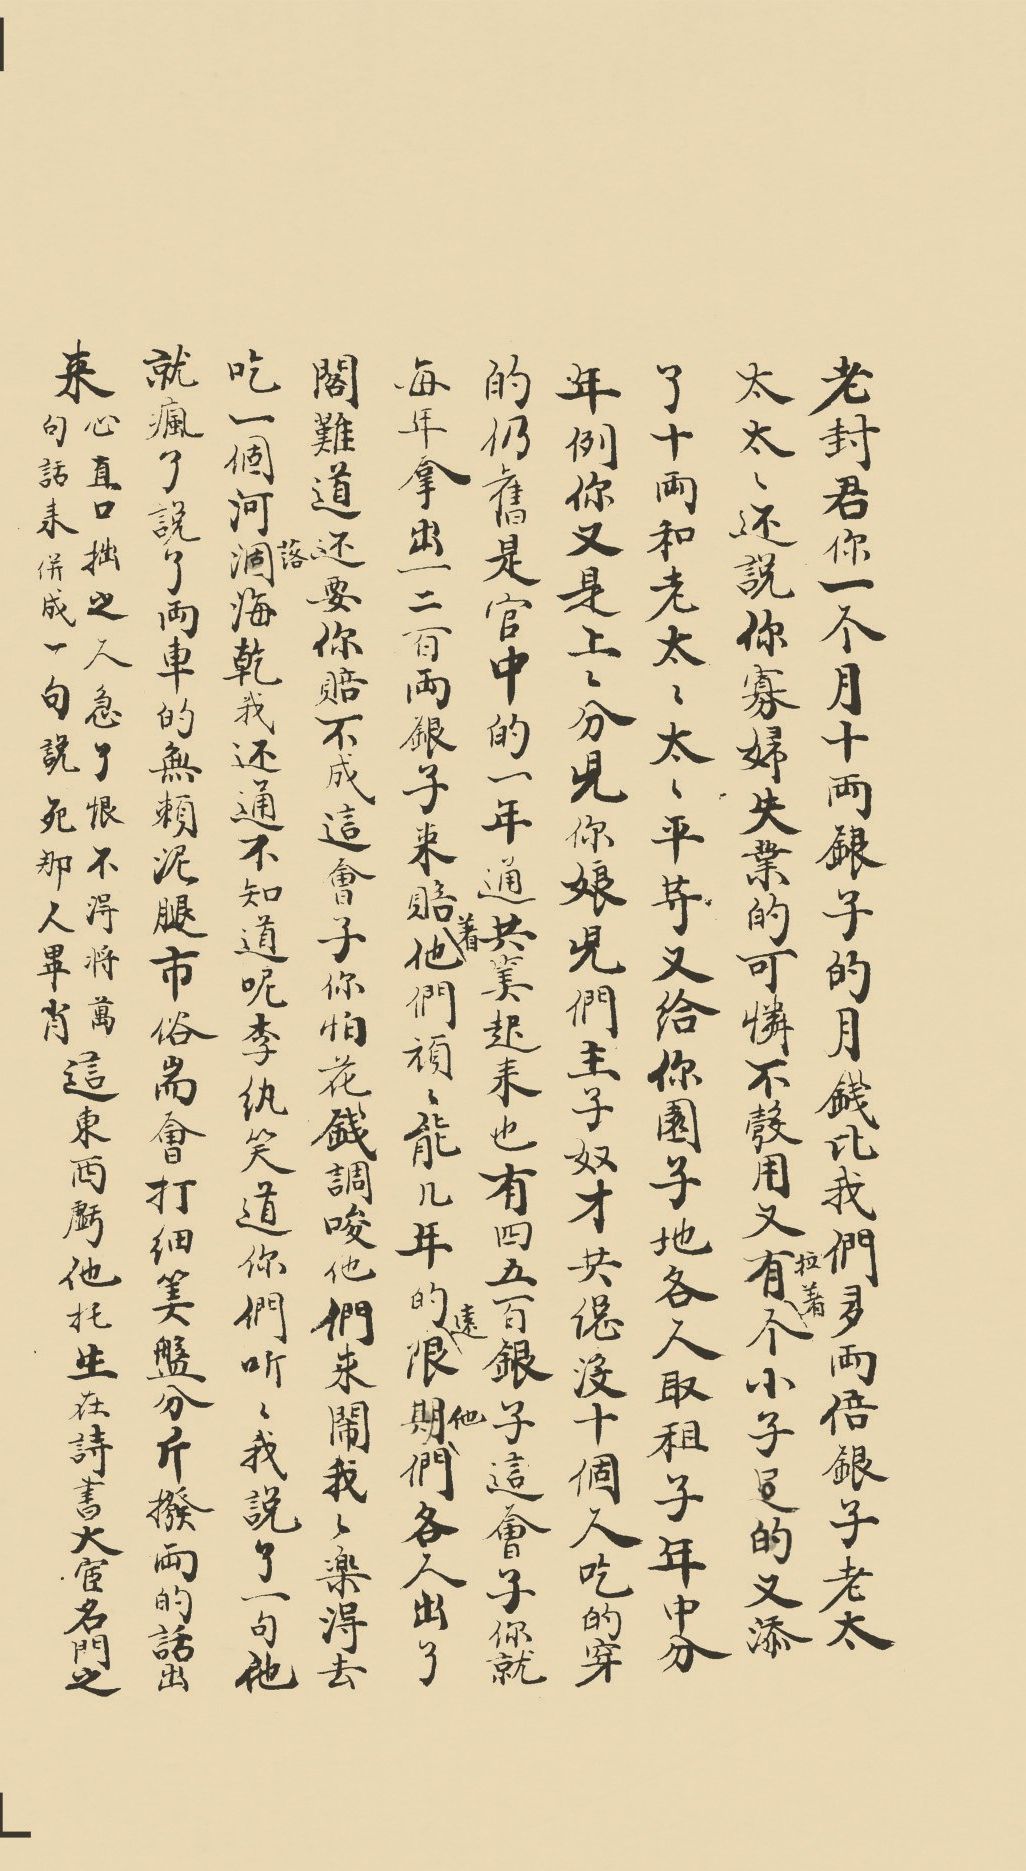 老封君你一个月十両銀子的月錢比我們多両倍銀子老太
太太〻还説你寡婦失業的可憐不彀用又有拉著个小子足的又添
了十両和老太〻太〻平等又給你園子地各人取租子年中分
年例你又是上〻分児你娘児們主子奴才共總没十個人吃的穿
的仍舊是官中的一年通共筭起来也有四五百銀子這會子你就
每年拿出一二百両銀子来賠着他們頑〻能几年的遠限期他們各人出了
閣難道还要你賠不成這會子你怕花錢調唆他們来鬧我〻楽得去
吃一個河落涸海乾我还通不知道呢李紈笑道你們听〻我説了一句他
就瘋了説了両車的無頼泥腿市俗耑會打細筭盤分斤撥両的話出
来
心直口拙之人急了恨不得将萬
句話来併成一句説死那人畢肖
這東西虧他托生在詩書大宦名門之